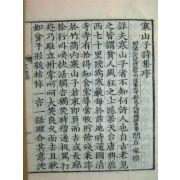 寒山子詩集序
閭丘胤撰
詳夫寒山子者不知何許人也自古老見
之皆謂貧人風狂之士隱居天台唐興縣
西七十里號為寒巖每於茲地時還國清
寺寺有拾得知食堂尋常收貯餘殘菜滓
於竹筒內寒山若來即負而去或長廊徐
行叫喚快活獨言獨笑時僧遂捉罵打
趁乃駐立撫掌呵呵大笑良久而去且狀
如貧子形貌枯悴一言一氣理合其意沉